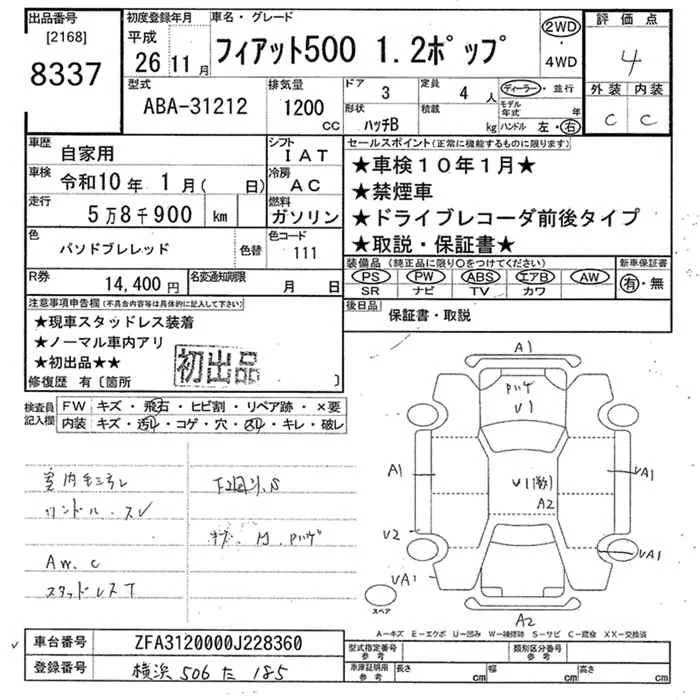 出品番号
[2168]
8337
初度登録年月
平成
26 11月
車名・グレード
フィアット500 1.2ポップ
2WD
・
4WD
評価点
4
外装 内装
C C
型式
ABA-31212
排気量
1200
CC
ドア
3
定員
4 人
ディーラー・並行
モデル年式 年
形状
ハッチB
積載
kg
ハンドル 左・右
車歴
自家用
シフト
IAT
車検
令和10年 1月( 日)
冷房
AC
走行
5万8千900 km
燃料
ガソリン
色
パソドブレレッド
色替
色コード
111
R券
14,400円
名変通知期限
月 日
セールスポイント(正常に機能するものに限ります)
★車検10年1月★
★禁煙車
★ドライブレコーダ前後タイプ
★取説・保証書★
装備品(純正品に限り○をつけてください)
PS PW ABS エアB AW
SR ナビ TV カワ
新車保証書
有・無
後日品
保証書・取説
注意事項申告欄(不具合内容等は具体的に記入して下さい)
★現車スタッドレス装着
★ノーマル車内アリ
★初出品★★
初出品
修復歴 有〔箇所 〕
検査員記入欄
FW キズ・飛石・ヒビ割・リペア跡・×要
内装 キズ・汚れ・コゲ・穴・スレ・キレ・破レ
AW.C
スタッドレスT
A1
ハゲ
U1
A1
A2
UA1
U2
UA1
UA1
A2
スペア
A-キズ E-エクボ U-凹み W-補修跡 S-サビ C-腐食 XX-交換済
車台番号
ZFA3120000J228360
登録番号
横浜 506 た 185
型式指定番号
参考
類別区分番号
参考
車庫証明用
参考
長さ cm
幅 cm
高さ cm